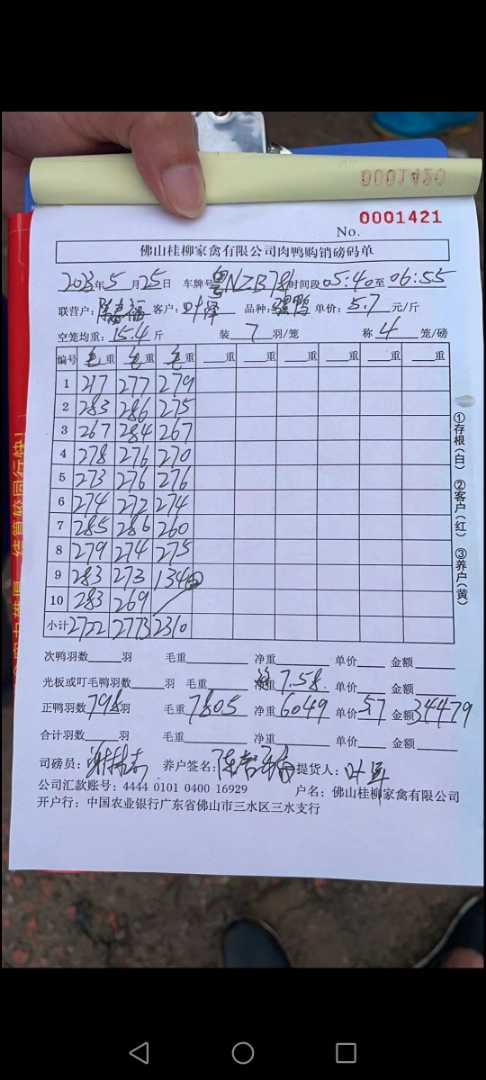 0001420
0001421
No.
佛山桂柳家禽有限公司肉鸭购销磅码单
2023年5月25日 车牌号粤NZB781 时间段05:40至06:55
联营户: 客户:叶泽 品种: 单价:5.7元/斤
空笼均重:15.4斤 装7羽/笼 称4笼/磅
编号 毛重 毛重 毛重 重 重 重 重 重 重
1 217 277 279
2 283 286 275
3 267 284 267
4 278 276 270
5 273 276 276
6 274 272 274
7 285 286 260
8 279 274 275
9 283 273 134
10 283 269
小计 2722 2773 2310
①存根(白) ②客户(红) ③养户(黄)
次鸭羽数 羽 毛重 净重 单价 金额
光板或叮毛鸭羽数 羽 毛重 净重 7.58 单价 金额
正鸭羽数798羽 毛重7805 净重6049 单价5.7 金额34479
合计羽数 羽 毛重 净重 单价 金额
司磅员: 养户签名: 提货人:
公司汇款账号: 4444 0101 0400 16929 户名: 佛山桂柳家禽有限公司
开户行: 中国农业银行广东省佛山市三水区三水支行